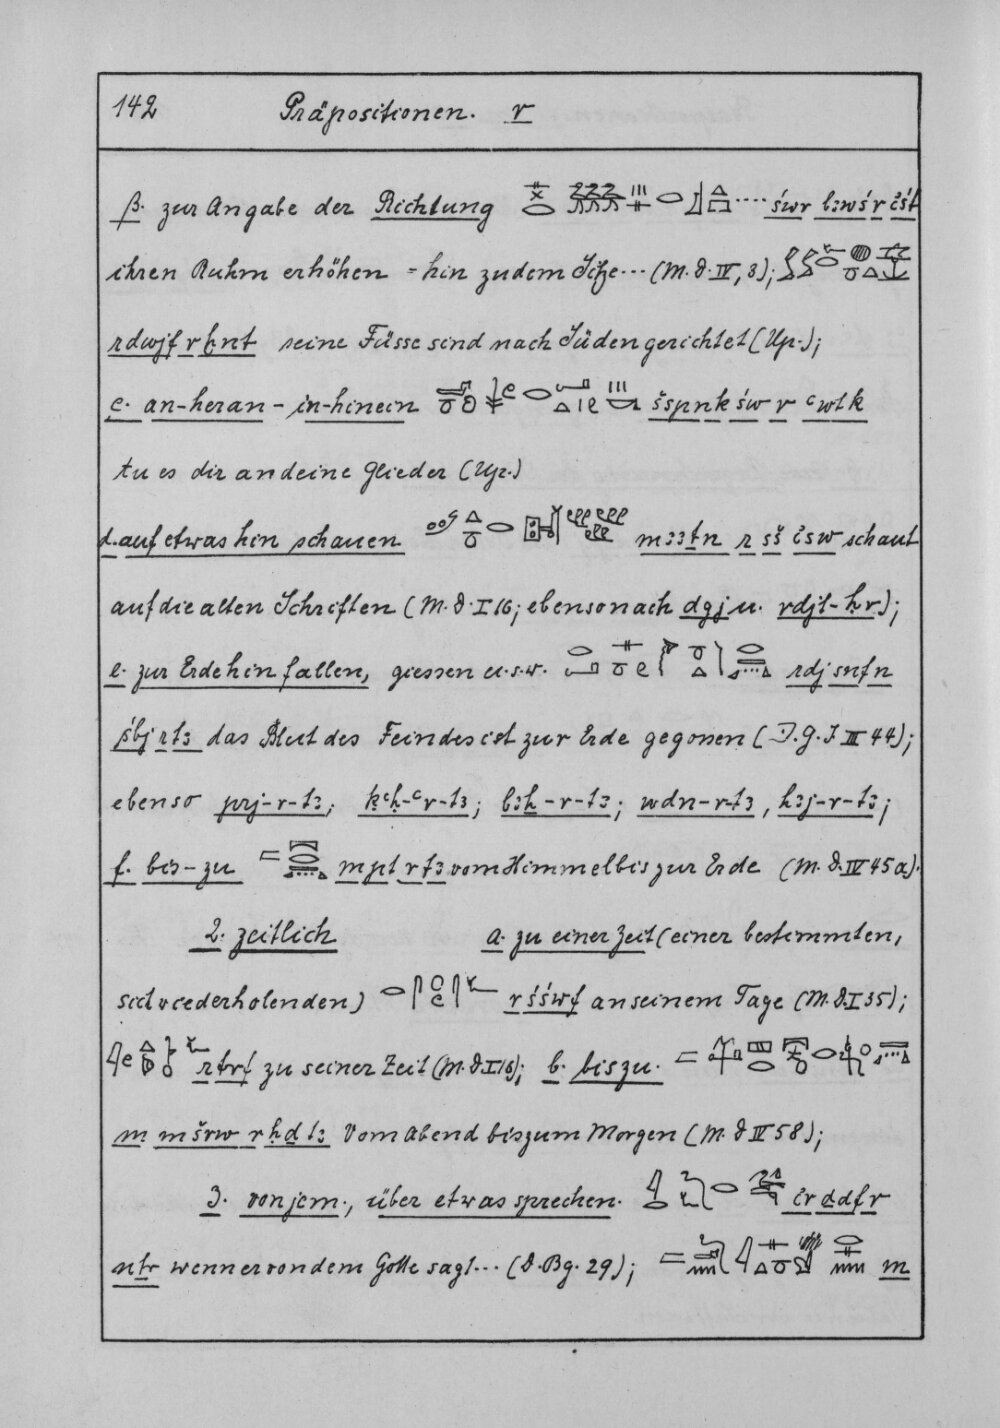 142 Präpositionen. r
β. zur Angabe der Richtung .... śwr bꜣwś r ı͗śt
ihren Ruhm erhöhen = hin zu dem Sitze... (M.d. IV, 3);
rdwjf r ḫnt seine Füsse sind nach Süden gerichtet (Up.);
c. an-heran - in-hinein šspnk św r ꜥwtk
tu es dir an deine Glieder (Up.)
d. auf etwas hin schauen mꜣꜣtn r sš ı͗sw schaut
auf die alten Schriften (M.d. I 16; ebenso nach dgj u. rdjt-ḥr);
e. zur Erde hin fallen, giessen u.s.w. rdj snfn
śbj r tꜣ das Blut des Feindes ist zur Erde gegossen (D.G.I III 44);
ebenso prj-r-tꜣ; ḳꜥḥ-ꜥ r-tꜣ; bꜣḥ-r-tꜣ; wdn-r-tꜣ, hꜣj-r-tꜣ;
f. bis-zu m pt r tꜣ vom Himmel bis zur Erde (M.d. IV 45a).
2. zeitlich a. zu einer Zeit (einer bestimmten,
sich wiederholenden) r śśwf an seinem Tage (M.d. I 35);
r trf zu seiner Zeit (M.d. I 16); b. bis zu.
m mšrw r ḥḏ tꜣ vom Abend bis zum Morgen (M.d IV 58);
3. von jem., über etwas sprechen. ı͗r ḏdf r
nṯr wenn er von dem Gotte sagt... (d.Bg. 29); m